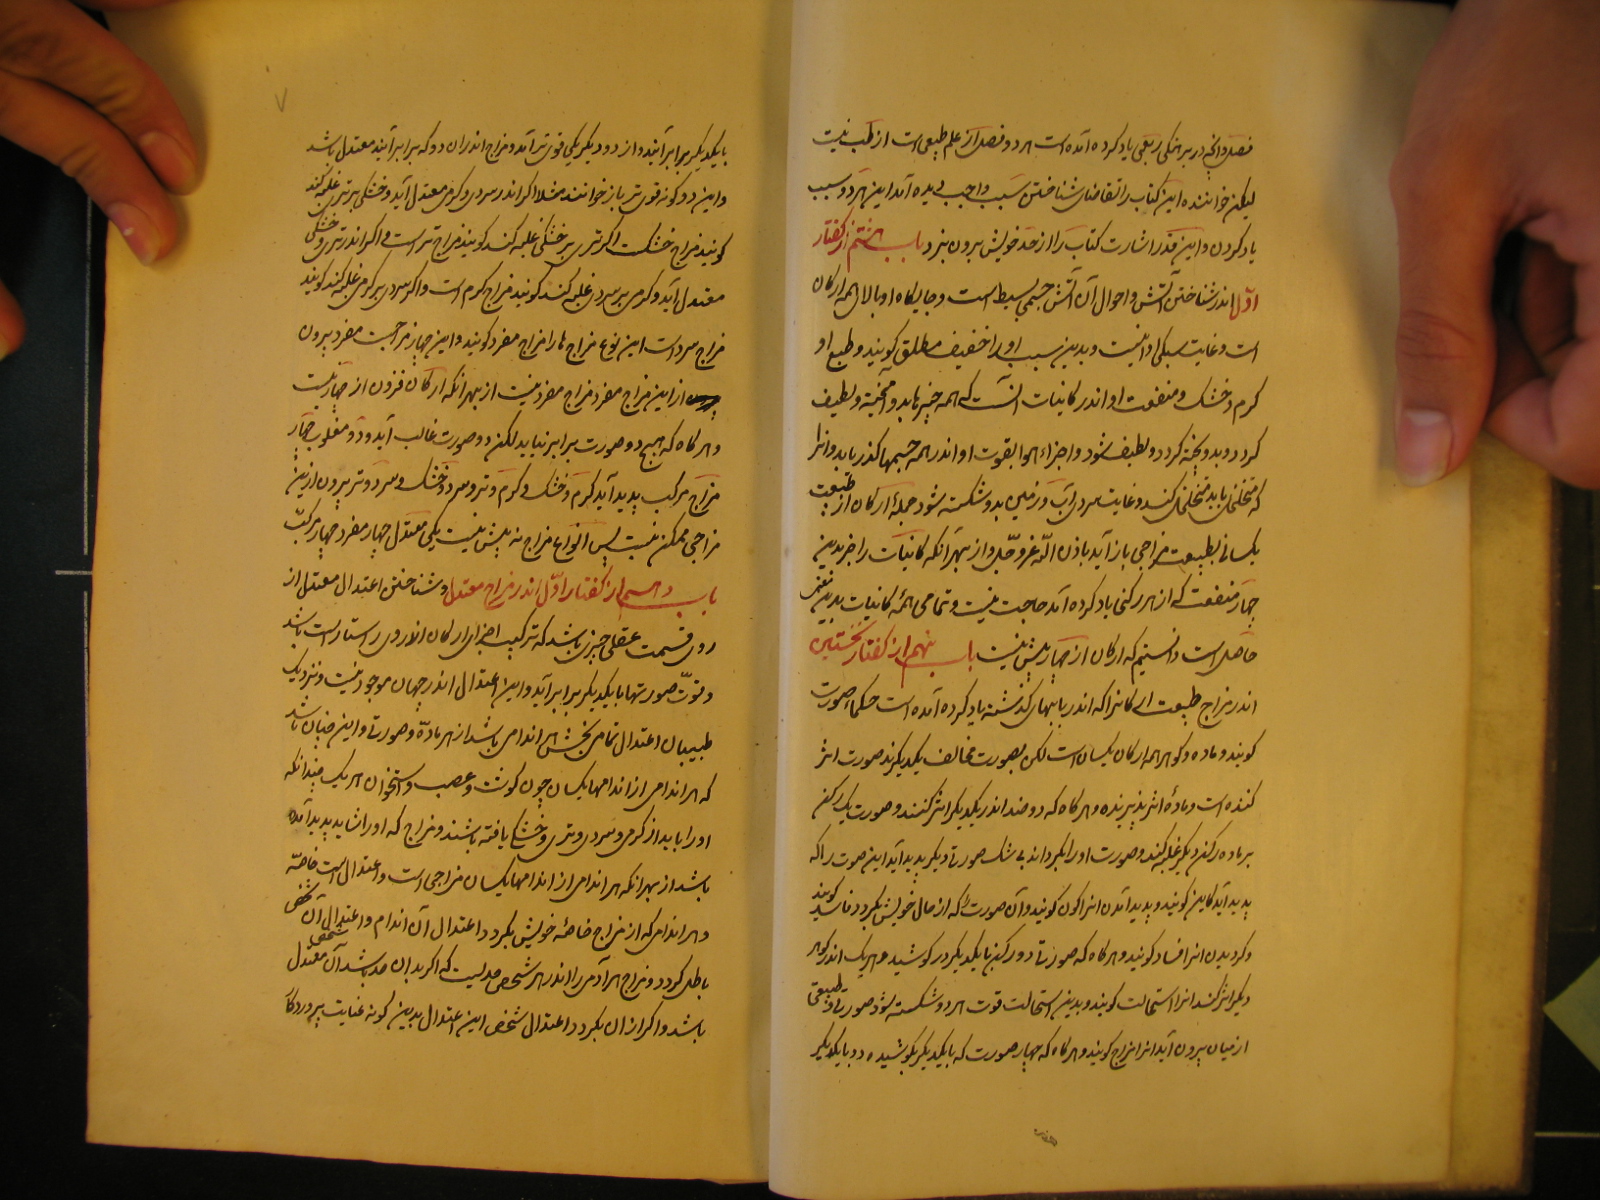 فصل و آنچه در بر خشکی ربعی یاد کرده آمده است هر دو فصل از علم طبیعی است از طب نیست
لیکن خواننده این کتاب را تقاضای شناختن سبب واجب پدیده آمد این هر دو سبب
یاد کردن و این قدر اشارت کتاب را از حد خویش بیرون نبرد باب هشتم از گفتار
اوّل اندر شناختن آتش و احوال آن آتش جسمی بسیط است و جایگاه او بالای همه ارکان
است و غایت سبکی او راست و بدین سبب او را خفیف مطلق گویند و طبع او
گرم و خشک و منفعت او اندر کاینات آنست که همه چیزها بدو آمیخته و لطیف
گردد و بدو پخته گردد و لطیف شود و اجزاء هوا بقوت او اندر همه جسمها گذر یابد و آنرا
که متخلخل باید متخلخل کند و غایت سردی آب و زمین بدو شکسته شود و جمله ارکان از طبیعت
یکسانی بطبیعت مزاجی باز آید باذن الله عزوجل و از بهر آنکه کاینات را جز بدین
چهار منفعت که از هر رکنی یاد کرده آمد حاجت نیست و تمامی همه کاینات بدین معنی
حاصل است دانستیم که ارکان از چهار بیش نیست باب نهم از گفتار نخستین
اندر مزاج طبیعت ارکانرا که اندر بابهای گذشته یاد کرده آمده است حکما صورت
گویند و ماده و گوهر همه ارکان یکسان است لکن بصورت مخالف یکدیگرند صورت اثر
کننده است و ماده اثر پذیرنده و هرگاه که دو ضد اندر یکدیگر اثر کنند و صورت یک رکن
بر ماده رکن دیگر غلبه کند و صورت او را بگرداند بی شک صورتی دیگر پدید آید این صورت را که
پدید آید کاین گویند و پدید آمدن آنرا کون گویند و آن صورت را که از حال خویش بگردد فاسد گویند
و گردیدن آنرا فساد گویند و هرگاه که صورت دو رکن با یکدیگر در کوشید و هر یک اندر گوهر
دیگر اثر کند آنرا استحالت گویند و بدین استحالت قوت هر دو شکسته شود صورتی و طبیعتی
از میان بیرون آید آنرا مزاج گویند و هرگاه که چهار صورت که با یکدیگر بکوشیده دو با یکدیگر
با یکدیگر برابر آیند و از دو دیگر یکی قوی تر آید و مزاج اندران دو که برابر آیند معتدل باشد
و این دو گونه قوی تر باز خوانند مثلا اگر اندر سردی و گرمی معتدل آید و خشکی بر تری غلبه کند
گویند مزاج خشکست اگر تری بر خشکی غلبه کند گویند مزاج تر است و اگر اندر تری و خشکی
معتدل آید و گرمی بر سردی غلبه کند گویند مزاج گرم است و اگر سردی بر گرمی غلبه کند گویند
مزاج سرد است این نوع مزاج ها را مزاج مفرد گویند و این چهار مزاجست مفرد بیرون
از این مزاج مفرد مزاج مفرد نیست از بهر آنکه ارکان فزون از چهار نیست
و هرگاه که هیچ دو صورت برابر نیاید لکن دو صورت غالب آید و دو مغلوب چهار
مزاج مرکب پدید آید گرم و خشک و گرم و تر و سرد و خشک و سرد و تر بیرون ازین
مزاجی ممکن نیست پس انواع مزاج نه بیش نیست یکی معتدل چهار مفرد چهار مرکب
باب دهم از گفتار اوّل اندر مزاج معتدل و شناختن اعتدال معتدل از
روی قسمت عقلی چیزی باشد که ترکیب اجزای ارکان از روی راستا راست باشد
و قوّت صورتها با یکدیگر برابر آید و این اعتدال اندر جهان موجود نیست و نزدیک
طبیبان اعتدال تمامی بخش هر اندامی باشد از هر مادّه و صورتی و این چنان باشد
که هر اندامی از اندامها یکسان چون گوشت و عصب و استخوان هر یک چندانکه
او را باید از گرمی و سردی و تری و خشکی یافته باشند و مزاج که او را شاید پدید آمده
باشد از بهر آنکه هر اندامی از اندامها یکسان مزاجی است و اعتدال است خاصّه
و هر اندامی که از مزاج خاصّه خویش بگردد اعتدال آن اندام و اعتدال آن شخص
باطل گردد و مزاج هر آدمی را اندر هر شخصی حدیست که اگر بدان حد باشد آن شخص معتدل
باشد و اگر ازان بگردد اعتدال شخص این اعتدال بدین گونه عنایت پروردگار